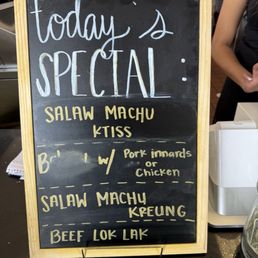 today's
SPECIAL:
SALAW MACHU
KTISS
w/ Pork innards
or
Chicken
SALAW MACHU
KREUNG
BEEF LOK LAK